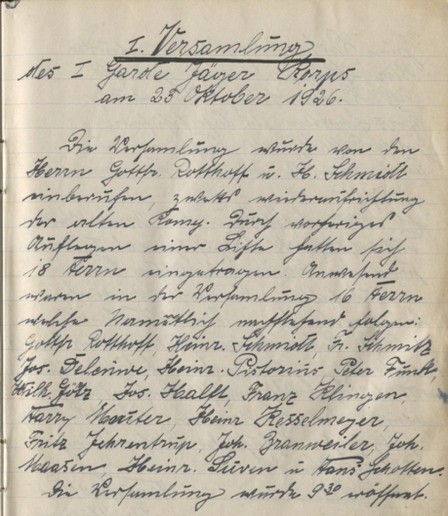 I. Versamlung
des I Garde Jäger Korps
am 23 Oktober 1926.
Die Versamlung wurde von den
Herrn Gottfr. Rotthoff u. H. Schmidt
einberufen, zwecks wiederaufrichtung
der alten Komp. Durch vorheriges
Auflegen einer Liste hatten sich
18 Herrn eingetragen. Anwesend
waren in der Versamlung 16 Herrn
welche Namentlich nachstehend folgen:
Gottfr Rotthoff, Heinr. Schmidt, Fr. Schmitz
Jos. Heinr. Pistorius, Peter Funk,
Wilh. Götz, Jos. Halft, Franz Klingen,
Harry Heinr Kesselmeyer,
Fritz Jehrentrup, Joh. Joh.
Maasen, Heinr. u Hans Schotten.
Die Versamlung wurde 9 30 eröffnet.